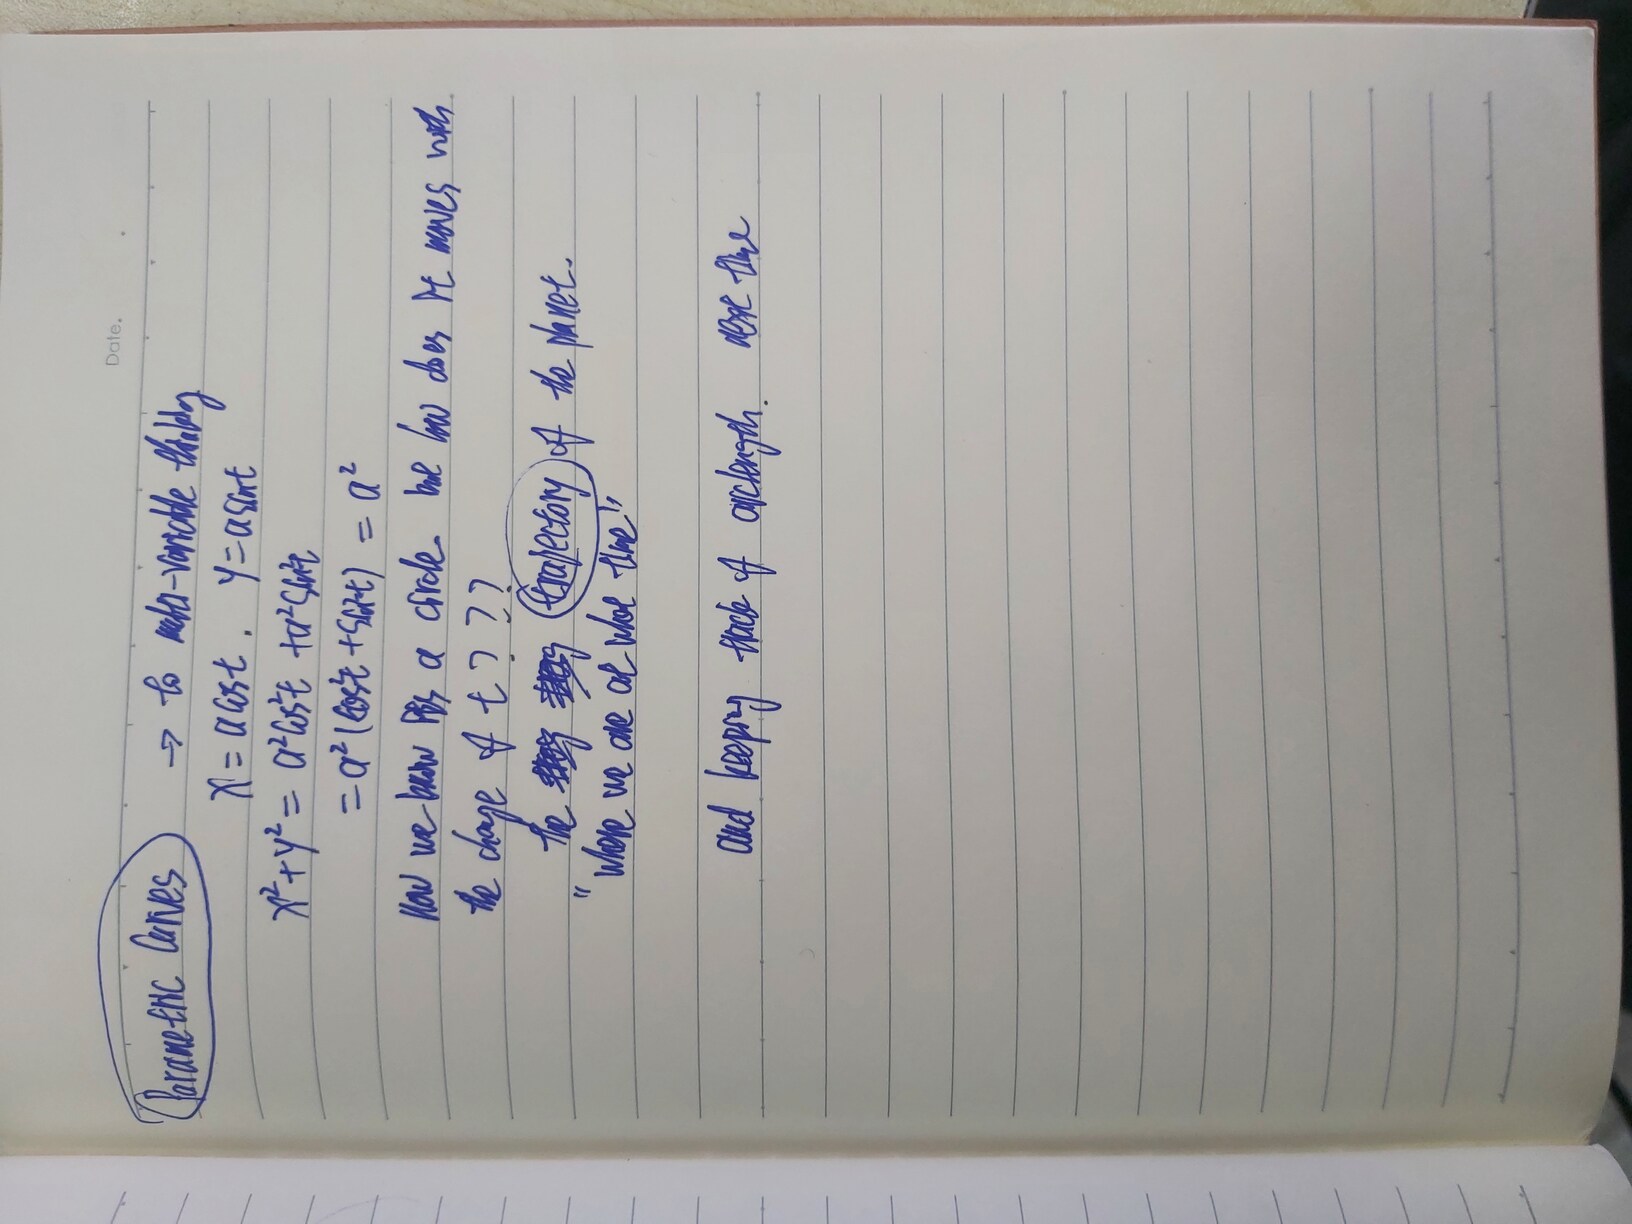 Date.
Parametric Curves → to multi-variable thinking
x = a cos t . y = a sin t
x² + y² = a² cos² t + a² sin² t
= a² (cos² t + sin² t) = a²
Now we know it's a circle. but how does it moves with
the change of t ? ? ?
the trajectory of the planet.
"where we are at what time"
and keeping track of arclength. next time